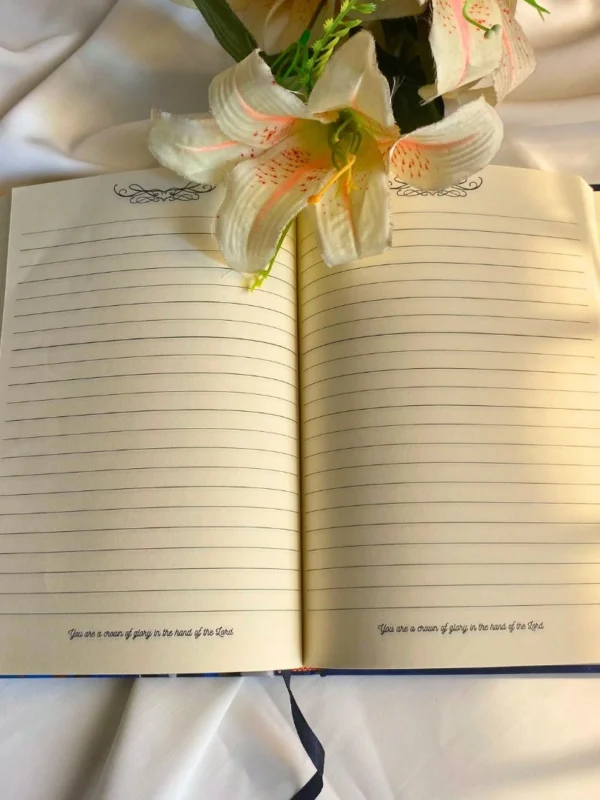 You are a crown of glory in the hand of the Lord
You are a crown of glory in the hand of the Lord